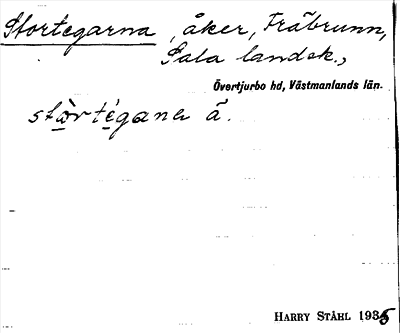 Stortegarna, åker, Fräbrunn,
Sala landsk.,
Övertjurbo hd, Västmanlands län.
stòrtégana ä.
HARRY STÅHL 1935